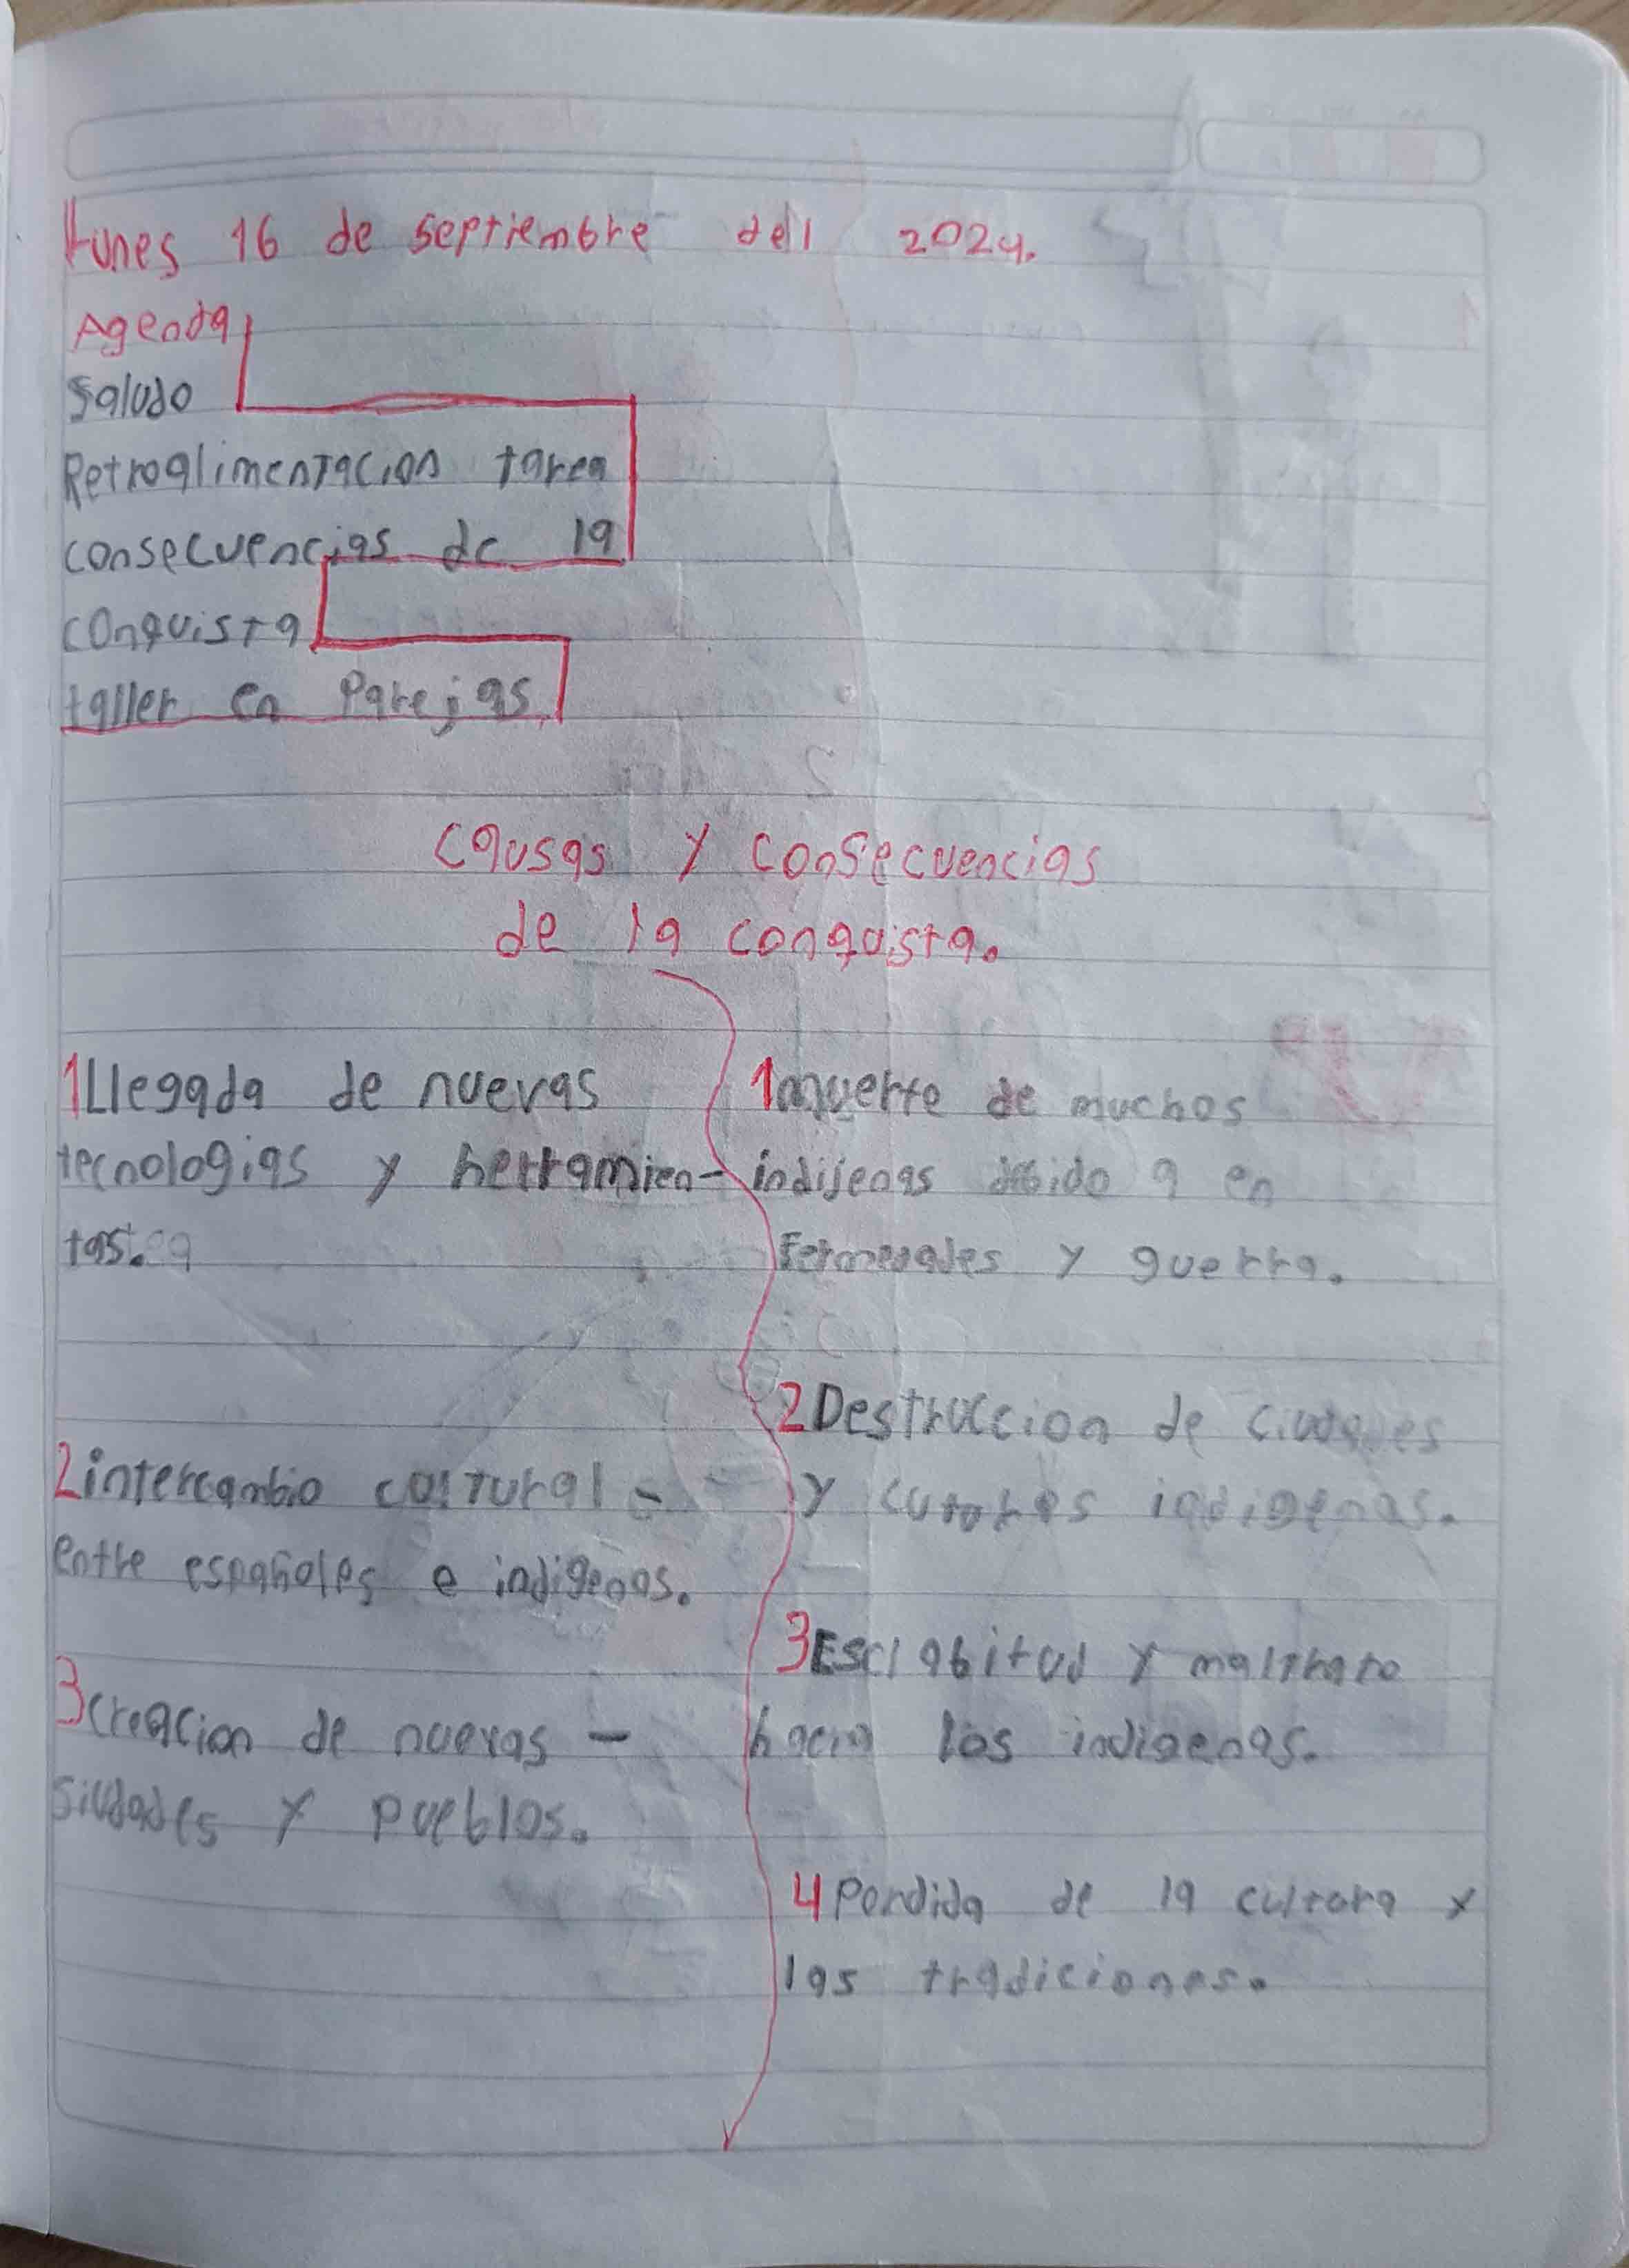 Lunes 16 de septiembre del 2024.
Agenda
Saludo
Retroalimentacion tarea
consecuencias de la
conquista
taller en Parejas
causas y consecuencias
de la conquista.
1 Llegada de nuevas
tecnologias y herramien-
tas.
2 intercambio cultural -
entre españoles e indigenas.
3 creacion de nuevas -
siudades y pueblos.
1 muerte de muchos
indijenas debido a en
y guerra.
2 Destruccion de ciudades
y indigenas.
3 Esclabitud y maltrato
hacia los indigenas.
4 Perdida de la cultura y
las tradiciones.